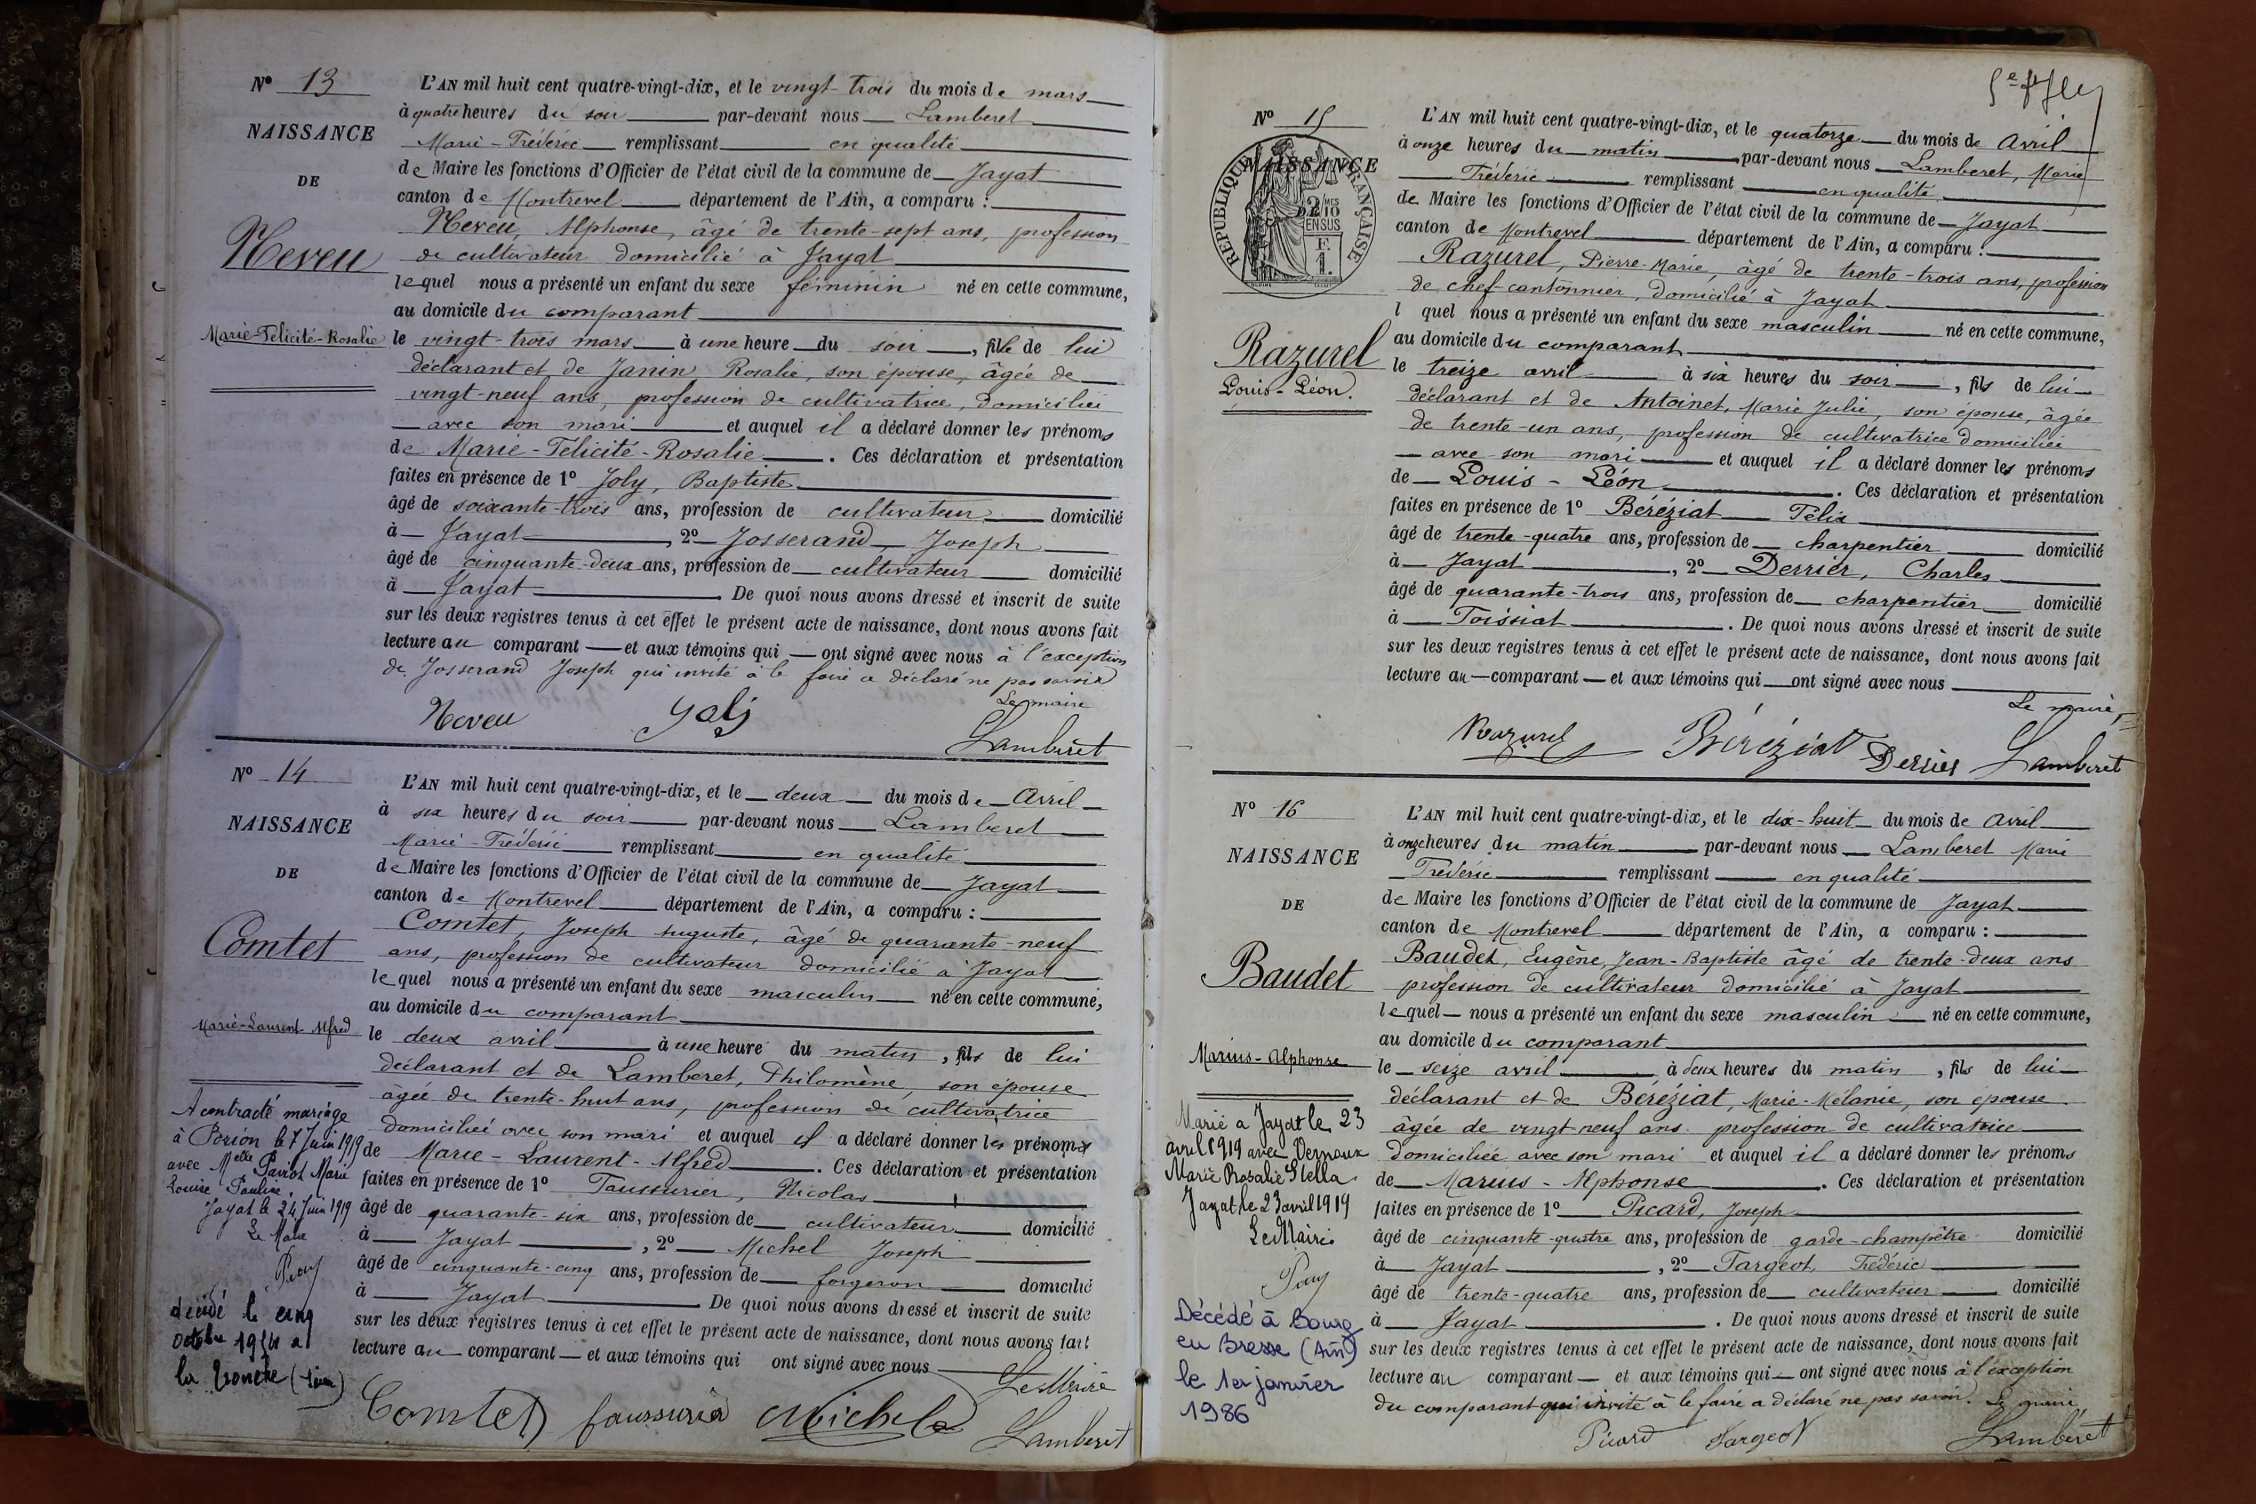 N° 13
NAISSANCE
DE
Neveu
Marie-Félicité-Rosalie
L'AN mil huit cent quatre-vingt-dix, et le vingt-trois du mois de mars
à quatre heures du soir par-devant nous Lamberet
Marie-Frédéric remplissant en qualité
de Maire les fonctions d'Officier de l'état civil de la commune de Jayat
canton de Montrevel département de l'Ain, a comparu :
Neveu, Alphonse, âgé de trente-sept ans, profession
de cultivateur domicilié à Jayat
lequel nous a présenté un enfant du sexe féminin né en cette commune,
au domicile du comparant
le vingt-trois mars à une heure du soir, fille de lui
déclarant et de Janin Rosalie, son épouse, âgée de
vingt-neuf ans, profession de cultivatrice, domiciliée
avec son mari et auquel il a déclaré donner les prénoms
de Marie-Félicité-Rosalie. Ces déclaration et présentation
faites en présence de 1° Joly, Baptiste
âgé de soixante-trois ans, profession de cultivateur domicilié
à Jayat, 2° Josserand Joseph
âgé de cinquante-deux ans, profession de cultivateur domicilié
à Jayat. De quoi nous avons dressé et inscrit de suite
sur les deux registres tenus à cet effet le présent acte de naissance, dont nous avons fait
lecture au comparant et aux témoins qui ont signé avec nous à l'exception
de Josserand Joseph qui invité à le faire a déclaré ne pas savoir
Le maire
Neveu Joly Lamberet
N° 14
NAISSANCE
DE
Comtet
Marie-Laurent-Alfred
A contracté mariage
à Perion le 7 Juin 1919
avec Melle Pariot Marie
Louise Pauline
Jayat le 24 Juin 1919
Le Maire
décédé le cinq
octobre 19 à
la Tronche (Isère)
L'AN mil huit cent quatre-vingt-dix, et le deux du mois de Avril
à six heures du soir par-devant nous Lamberet
Marie-Frédéric remplissant en qualité
de Maire les fonctions d'Officier de l'état civil de la commune de Jayat
canton de Montrevel département de l'Ain, a comparu :
Comtet, Joseph Auguste, âgé de quarante-neuf
ans, profession de cultivateur domicilié à Jayat
lequel nous a présenté un enfant du sexe masculin né en cette commune,
au domicile du comparant
le deux avril à une heure du matin, fils de lui
déclarant et de Lamberet, Philomène, son épouse
âgée de trente-huit ans, profession de cultivatrice
domiciliée avec son mari et auquel il a déclaré donner les prénoms
de Marie-Laurent-Alfred. Ces déclaration et présentation
faites en présence de 1° Faussurier, Nicolas
âgé de quarante-six ans, profession de cultivateur domicilié
à Jayat, 2° Michel Joseph
âgé de cinquante-cinq ans, profession de forgeron domicilié
à Jayat De quoi nous avons dressé et inscrit de suite
sur les deux registres tenus à cet effet le présent acte de naissance, dont nous avons fait
lecture au comparant et aux témoins qui ont signé avec nous
Le Maire
Comtet faussurier Michel Lamberet
N° 15
NAISSANCE
REPUBLIQUE FRANÇAISE
2 MES
10
EN SUS
F.
1.
Razurel
Louis-Léon.
L'AN mil huit cent quatre-vingt-dix, et le quatorze du mois de Avril
à onze heures du matin par-devant nous Lamberet, Marie
Frédéric remplissant en qualité
de Maire les fonctions d'Officier de l'état civil de la commune de Jayat
canton de Montrevel département de l'Ain, a comparu :
Razurel, Pierre-Marie, âgé de trente-trois ans, profession
de chef cantonnier, domicilié à Jayat
l quel nous a présenté un enfant du sexe masculin né en cette commune,
au domicile du comparant
le treize avril à six heures du soir, fils de lui
déclarant et de Antoinet, Marie Julie, son épouse, âgée
de trente-un ans, profession de cultivatrice domiciliée
avec son mari et auquel il a déclaré donner les prénoms
de Louis-Léon. Ces déclaration et présentation
faites en présence de 1° Béréziat Félix
âgé de trente-quatre ans, profession de charpentier domicilié
à Jayat, 2° Derrier, Charles
âgé de quarante-trois ans, profession de charpentier domicilié
à Foissiat. De quoi nous avons dressé et inscrit de suite
sur les deux registres tenus à cet effet le présent acte de naissance, dont nous avons fait
lecture au comparant et aux témoins qui ont signé avec nous
Le maire,
Razurel Béréziat Derrier Lamberet
N° 16
NAISSANCE
DE
Baudet
Marius-Alphonse
Marié à Jayat le 23
avril 1919 avec Vernoux
Marie Rosalie Stella
Jayat le 23 avril 1919
Le Maire
Décédé à Bourg
en Bresse (Ain)
le 1er janvier
1986
L'AN mil huit cent quatre-vingt-dix, et le dix-huit du mois de Avril
à onze heures du matin par-devant nous Lamberet Marie
Frédéric remplissant en qualité
de Maire les fonctions d'Officier de l'état civil de la commune de Jayat
canton de Montrevel département de l'Ain, a comparu :
Baudet, Eugène, Jean-Baptiste âgé de trente-deux ans
profession de cultivateur domicilié à Jayat
lequel nous a présenté un enfant du sexe masculin né en cette commune,
au domicile du comparant
le seize avril à deux heures du matin, fils de lui
déclarant et de Béréziat, Marie-Mélanie, son épouse
âgée de vingt neuf ans profession de cultivatrice
domiciliée avec son mari et auquel il a déclaré donner les prénoms
de Marius-Alphonse. Ces déclaration et présentation
faites en présence de 1° Picard, Joseph
âgé de cinquante-quatre ans, profession de garde-champêtre domicilié
à Jayat, 2° Fargeot, Frédéric
âgé de trente-quatre ans, profession de cultivateur domicilié
à Jayat. De quoi nous avons dressé et inscrit de suite
sur les deux registres tenus à cet effet le présent acte de naissance, dont nous avons fait
lecture au comparant et aux témoins qui ont signé avec nous à l'exception
du comparant qui invité à le faire a déclaré ne pas savoir. Le maire
Picard Fargeot Lamberet